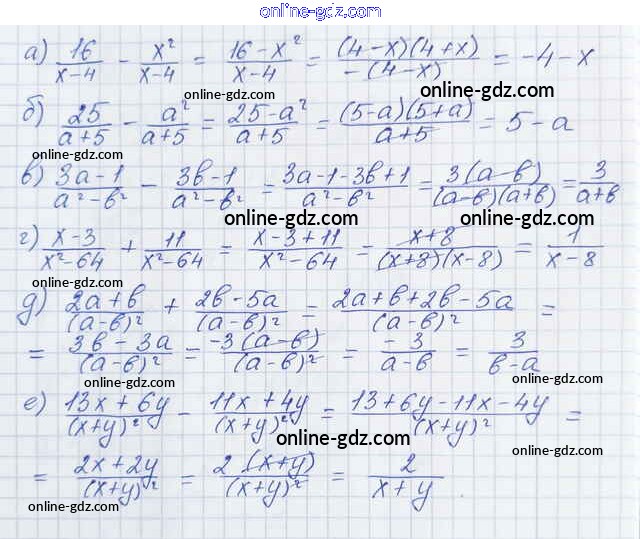 online-gdz.com
а) 16/(x-4) - x²/(x-4) = (16-x²)/(x-4) = (4-x)(4+x)/-(4-x) = -4-x
online-gdz.com
б) 25/(a+5) - a²/(a+5) = (25-a²)/(a+5) = (5-a)(5+a)/(a+5) = 5-a
online-gdz.com
online-gdz.com
в) (3a-1)/(a²-b²) - (3b-1)/(a²-b²) = (3a-1-3b+1)/(a²-b²) = 3(a-b)/(a-b)(a+b) = 3/(a+b)
online-gdz.com
online-gdz.com
г) (x-3)/(x²-64) + 11/(x²-64) = (x-3+11)/(x²-64) = (x+8)/(x+8)(x-8) = 1/(x-8)
online-gdz.com
online-gdz.com
д) (2a+b)/(a-b)² + (2b-5a)/(a-b)² = (2a+b+2b-5a)/(a-b)² =
online-gdz.com
= (3b-3a)/(a-b)² = -3(a-b)/(a-b)² = -3/(a-b) = 3/(b-a)
online-gdz.com
online-gdz.com
е) (13x+6y)/(x+y)² - (11x+4y)/(x+y)² = (13+6y-11x-4y)/(x+y)² =
online-gdz.com
online-gdz.com
= (2x+2y)/(x+y)² = 2(x+y)/(x+y)² = 2/(x+y).
online-gdz.com
online-gdz.com
online-gdz.com